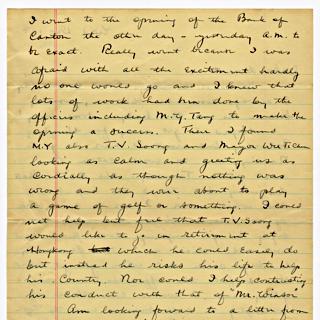 I went to the opening of the Bank of
Canton the other day - yesterday A.M. to
be exact. Really went because I was
afraid with all the excitement hardly
no one would go and I knew that
lots of work had been done by the
officers including M.Y. Tang to make the
opening a success. There I found
M.Y. also T.V. Soong and Mayor Wu TeChen
looking as calm and greeting us as
cordially as though nothing was
wrong and they were about to play
a game of golf or something. I could
not help but feel that T.V. Soong
would like to go in retirement at
Hongkong which he could easily do
but instead he risks his life to help
his Country. Nor could I help contrasting
his conduct with that of "Mr.
Am looking forward to a letter from